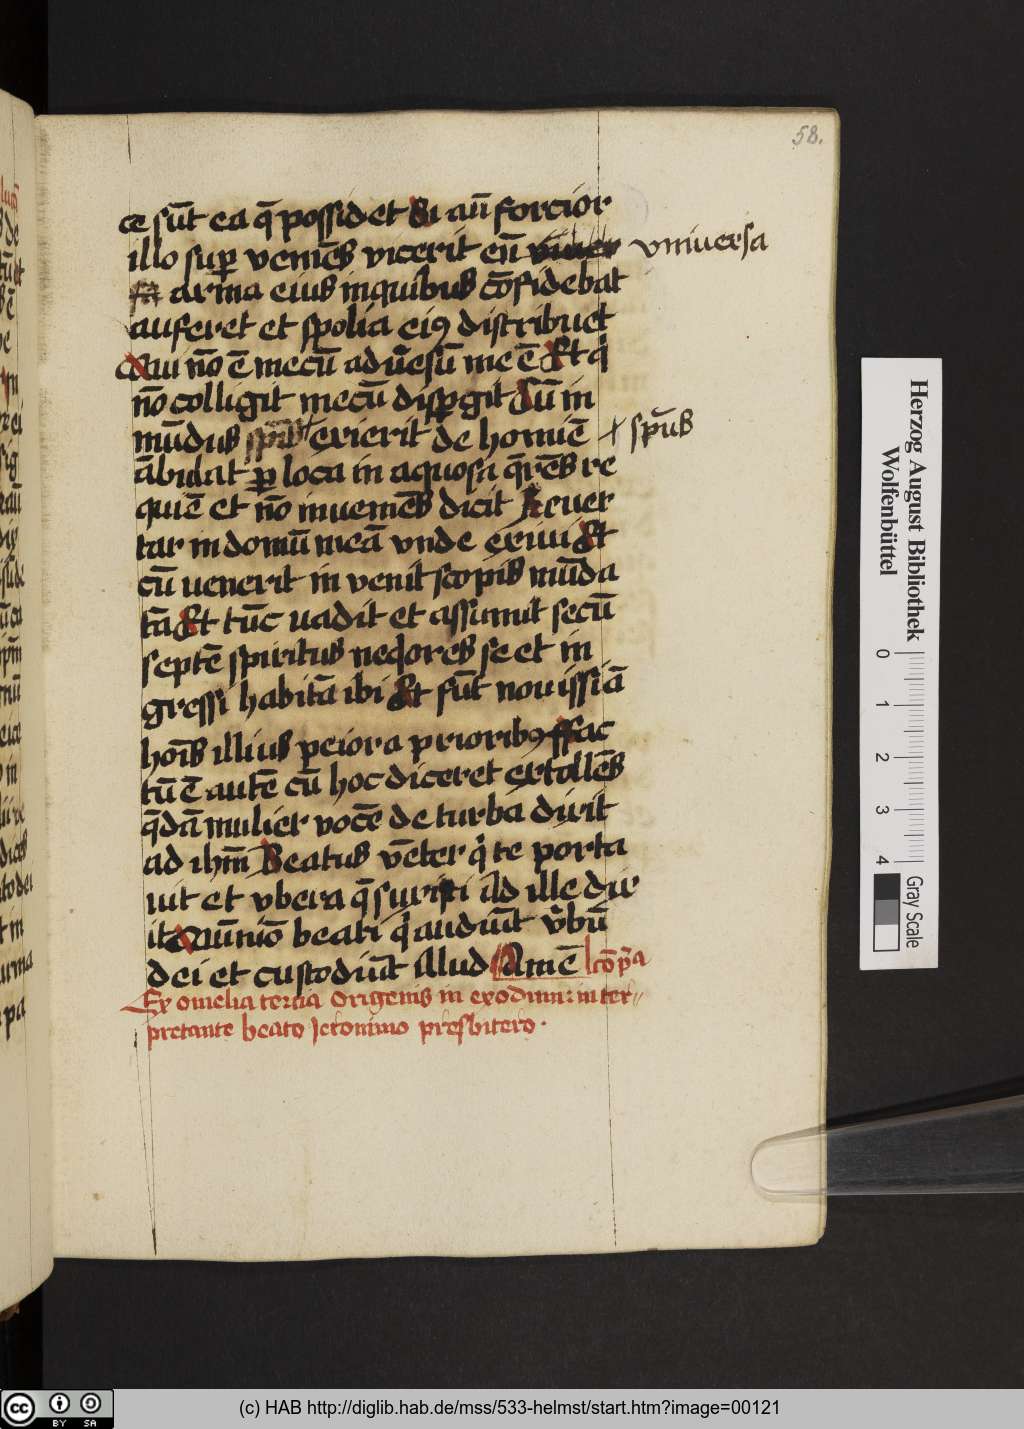 58.
ce sūt ea q̄ possidet Si aūt forcior
illo sup̱ veniēs vicerit eū vniuersa
arma eius inquibus cōfidebat
auferet et spolia eiꝰ distribuet
Qui nō ē mecū aduēsū me ē Et qͥ
nō colligit mecū dispgit Cū in
mūdus exierit de homiē + spūs
ābulat ꝑ loca in aquosa q̄rēs re
quiē et nō inueniēs dicit Reuer
tar in domū meā vnde exiui Et
cū uenerit in venit scopis mūda
tā Et tūc uadit et assumit secū
septē spiritus neqores se et in
gressi habitā ibi Et fūt nouissiā
hoīs illius peiora prioribꝰ ffac
tū ē autē cū hoc diceret extollēs
q̄dā mulier vocē de turba dixit
ad ihm̄ Beatus vēter qͥ te porta
uit et vbera q̄ suxisti Ad ille dix
it Qūniō beati qͥ audiūt v̄bū
dei et custodiūt illud Amē cōp̄a
Ex omelia tercia Origenis in exodum: inter
pretante beato Jeronimo presbitero.
Herzog August Bibliothek
Wolfenbüttel
0 1 2 3 4
Gray Scale
cc BY SA
(c) HAB http://diglib.hab.de/mss/533-helmst/start.htm?image=00121